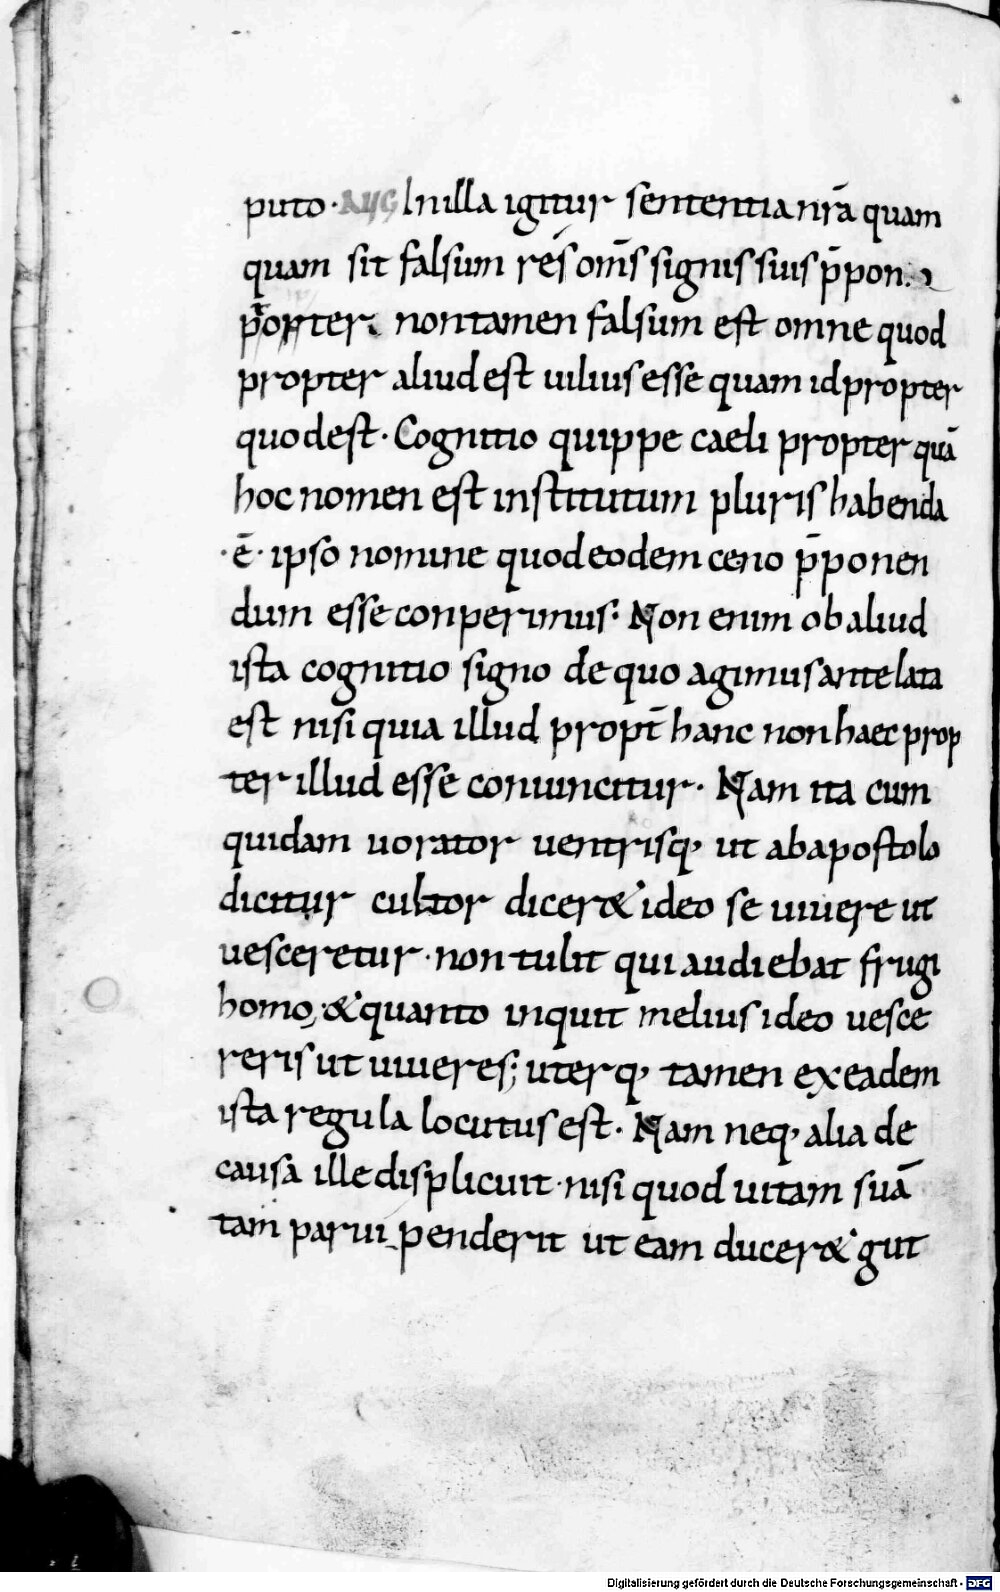 puto · AUG In illa igitur sententia nr̄a quam
quam sit falsum res om̄s signis suis p̄pon.
p̄opter non tamen falsum est omne quod
propter aliud est uilius esse quam id propter
quod est · Cognitio quippe caeli propter quā
hoc nomen est institutum pluris habenda
· ē · ipso nomine quod eodem ceno p̄ponen
dum esse conperimus · Non enim ob aliud
ista cognitio signo de quo agimus antelata
est nisi quia illud propt̄ hanc non haec prop
ter illud esse conuincitur · Nam ita cum
quidam uorator uentrisq, ut ab apostolo
dicitur cultor dicer& ideo se uiuere ut
uesceretur · non tulit qui audiebat frugi
homo, & quanto inquit melius ideo uesce
reris ut uiueres; uterq, tamen ex eadem
ista regula locutus est · Nam neq, alia de
causa ille displicuit · nisi quod uitam suā
tam parui penderit ut eam ducer& gut
Digitalisierung gefördert durch die Deutsche Forschungsgemeinschaft - DFG